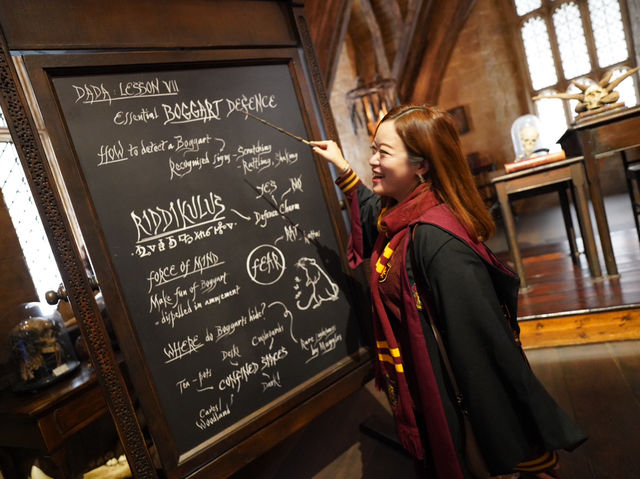 DADA: LESSON VII
Essential BOGGART DEFENCE
HOW to detect a Boggart
Recognised signs - Scratching
Rattling, Shaking
YES NO
RIDDIKULUS
Defence Charm
FEAR
FORCE OF MIND
Make fun of Boggart
- dispelled in amusement
WHERE do Boggarts hide?
Dark Cupboards
Tea-pots CONFINED SPACES
Dark!
Caves/
Woodland
by Muggles